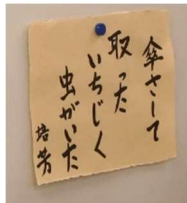 傘さして
取った
いちじく
虫がいた
培芳